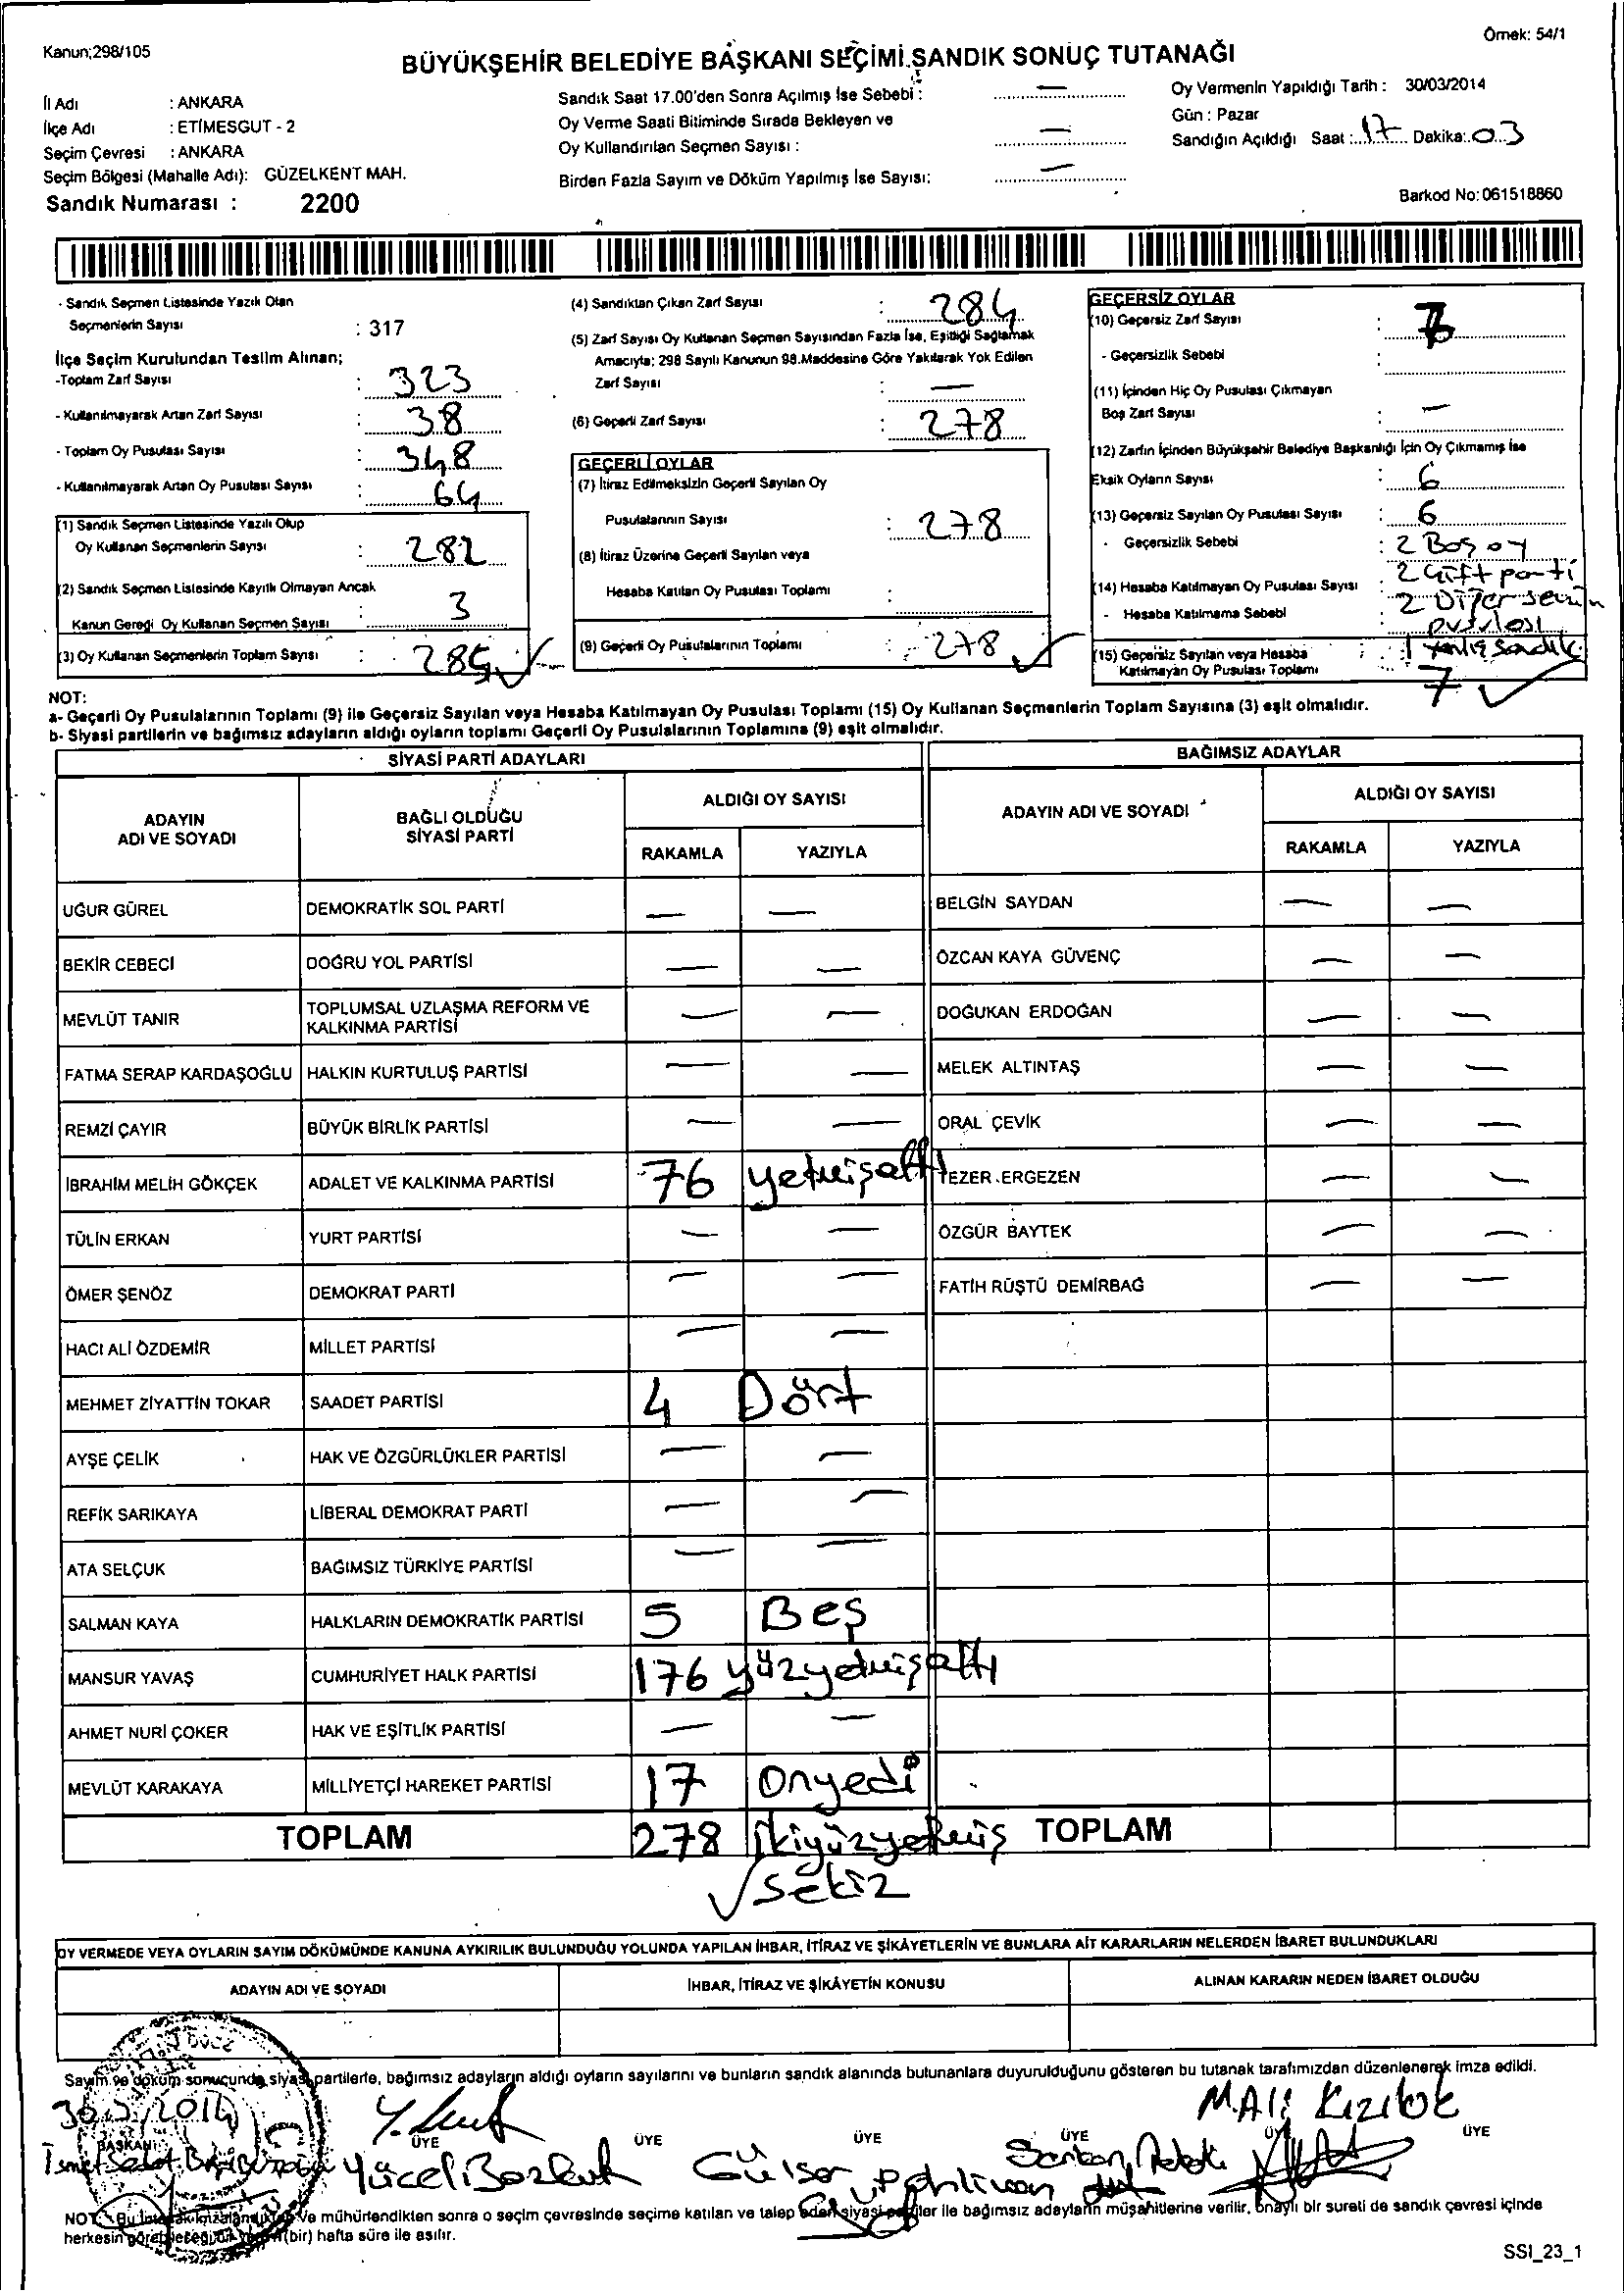 Kanun;298/105
Örnek: 54/1
BÜYÜKŞEHİR BELEDİYE BAŞKANI SEÇİMİ SANDIK SONUÇ TUTANAĞI
İl Adı : ANKARA
İlçe Adı : ETİMESGUT - 2
Seçim Çevresi : ANKARA
Seçim Bölgesi (Mahalle Adı): GÜZELKENT MAH.
Sandık Numarası : 2200
Sandık Saat 17.00'den Sonra Açılmış İse Sebebi : —
Oy Verme Saati Bitiminde Sırada Bekleyen ve
Oy Kullandırılan Seçmen Sayısı : —
Birden Fazla Sayım ve Döküm Yapılmış İse Sayısı: —
Oy Vermenin Yapıldığı Tarih : 30/03/2014
Gün : Pazar
Sandığın Açıldığı Saat : 17 Dakika: 03
Barkod No: 061518860
- Sandık Seçmen Listesinde Yazılı Olan
Seçmenlerin Sayısı : 317
İlçe Seçim Kurulundan Teslim Alınan;
-Toplam Zarf Sayısı : 323
- Kullanılmayarak Artan Zarf Sayısı : 38
- Toplam Oy Pusulası Sayısı : 348
- Kullanılmayarak Artan Oy Pusulası Sayısı : 64
(1) Sandık Seçmen Listesinde Yazılı Olup
Oy Kullanan Seçmenlerin Sayısı : 282
(2) Sandık Seçmen Listesinde Kayıtlı Olmayan Ancak
Kanun Gereği Oy Kullanan Seçmen Sayısı : 3
(3) Oy Kullanan Seçmenlerin Toplam Sayısı :
(4) Sandıktan Çıkan Zarf Sayısı : 284
(5) Zarf Sayısı Oy Kullanan Seçmen Sayısından Fazla İse, Eşitliği Sağlamak
Amacıyla; 298 Sayılı Kanunun 98.Maddesine Göre Yakılarak Yok Edilen
Zarf Sayısı : —
(6) Geçerli Zarf Sayısı : 278
GEÇERLİ OYLAR
(7) İtiraz Edilmeksizin Geçerli Sayılan Oy
Pusulalarının Sayısı : 278
(8) İtiraz Üzerine Geçerli Sayılan veya
Hesaba Katılan Oy Pusulası Toplamı :
(9) Geçerli Oy Pusulalarının Toplamı : 278
GEÇERSİZ OYLAR
(10) Geçersiz Zarf Sayısı :
- Geçersizlik Sebebi :
(11) İçinden Hiç Oy Pusulası Çıkmayan
Boş Zarf Sayısı : —
(12) Zarfın İçinden Büyükşehir Belediye Başkanlığı İçin Oy Çıkmamış İse
Eksik Oyların Sayısı : 6
(13) Geçersiz Sayılan Oy Pusulası Sayısı : 6
- Geçersizlik Sebebi : 2 Boş oy
2 Çift parti
(14) Hesaba Katılmayan Oy Pusulası Sayısı : 2 Diğer seçim
- Hesaba Katılmama Sebebi : pusulası
1 yanlış sandık
(15) Geçersiz Sayılan veya Hesaba
Katılmayan Oy Pusulası Toplamı : 7
NOT:
a- Geçerli Oy Pusulalarının Toplamı (9) ile Geçersiz Sayılan veya Hesaba Katılmayan Oy Pusulası Toplamı (15) Oy Kullanan Seçmenlerin Toplam Sayısına (3) eşit olmalıdır.
b- Siyasi partilerin ve bağımsız adayların aldığı oyların toplamı Geçerli Oy Pusulalarının Toplamına (9) eşit olmalıdır.
SİYASİ PARTİ ADAYLARI
ADAYIN ADI VE SOYADI BAĞLI OLDUĞU SİYASİ PARTİ ALDIĞI OY SAYISI
RAKAMLA YAZIYLA
UĞUR GÜREL DEMOKRATİK SOL PARTİ — —
BEKİR CEBECİ DOĞRU YOL PARTİSİ — —
MEVLÜT TANIR TOPLUMSAL UZLAŞMA REFORM VE KALKINMA PARTİSİ — —
FATMA SERAP KARDAŞOĞLU HALKIN KURTULUŞ PARTİSİ — —
REMZİ ÇAYIR BÜYÜK BİRLİK PARTİSİ — —
İBRAHİM MELİH GÖKÇEK ADALET VE KALKINMA PARTİSİ 76 yetmişaltı
TÜLİN ERKAN YURT PARTİSİ — —
ÖMER ŞENÖZ DEMOKRAT PARTİ — —
HACI ALİ ÖZDEMİR MİLLET PARTİSİ — —
MEHMET ZİYATTİN TOKAR SAADET PARTİSİ 4 Dört
AYŞE ÇELİK HAK VE ÖZGÜRLÜKLER PARTİSİ — —
REFİK SARIKAYA LİBERAL DEMOKRAT PARTİ — —
ATA SELÇUK BAĞIMSIZ TÜRKİYE PARTİSİ — —
SALMAN KAYA HALKLARIN DEMOKRATİK PARTİSİ 5 Beş
MANSUR YAVAŞ CUMHURİYET HALK PARTİSİ 176 yüzyetmişaltı
AHMET NURİ ÇOKER HAK VE EŞİTLİK PARTİSİ — —
MEVLÜT KARAKAYA MİLLİYETÇİ HAREKET PARTİSİ 17 Onyedi
TOPLAM 278 İkiyüzyetmiş
sekiz
BAĞIMSIZ ADAYLAR
ADAYIN ADI VE SOYADI ALDIĞI OY SAYISI
RAKAMLA YAZIYLA
BELGİN SAYDAN — —
ÖZCAN KAYA GÜVENÇ — —
DOĞUKAN ERDOĞAN — —
MELEK ALTINTAŞ — —
ORAL ÇEVİK — —
TEZER ERGEZEN — —
ÖZGÜR BAYTEK — —
FATİH RÜŞTÜ DEMİRBAĞ — —
TOPLAM
OY VERMEDE VEYA OYLARIN SAYIM DÖKÜMÜNDE KANUNA AYKIRILIK BULUNDUĞU YOLUNDA YAPILAN İHBAR, İTİRAZ VE ŞİKÂYETLERİN VE BUNLARA AİT KARARLARIN NELERDEN İBARET BULUNDUKLARI
ADAYIN ADI VE SOYADI İHBAR, İTİRAZ VE ŞİKÂYETİN KONUSU ALINAN KARARIN NEDEN İBARET OLDUĞU
Sayım ve döküm sonucunda siyasi partilerle, bağımsız adayların aldığı oyların sayılarını ve bunların sandık alanında bulunanlara duyurulduğunu gösteren bu tutanak tarafımızdan düzenlenerek imza edildi.
M.Ali Kızılok
BAŞKAN ÜYE ÜYE ÜYE ÜYE ÜYE ÜYE
Yücel Bozkurt Gülser Pehlivan Serkan
NOT: Bu tutanak imzalandıktan ve mühürlendikten sonra o seçim çevresinde seçime katılan ve talep eden siyasi partiler ile bağımsız adayların müşahitlerine verilir, onaylı bir sureti de sandık çevresi içinde
herkesin görebileceği bir yere (bir) hafta süre ile asılır.
SSI_23_1